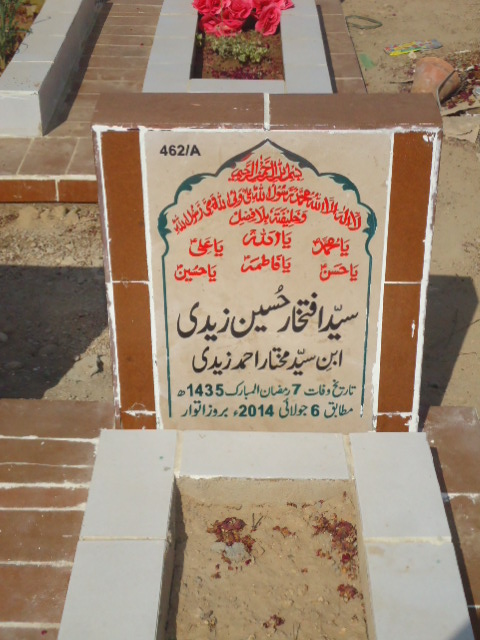 462/A
بسم الله الرحمن الرحیم
لا اله الا الله محمد رسول الله علی ولی الله وصی رسول الله
وخلیفته بلا فصل
یا محمدؐ یا الله یا علیؑ
یا حسنؑ یا فاطمہؑ یا حسینؑ
سیّد افتخار حُسین زیدی
ابنِ سیّد مختار احمد زیدی
تاریخ وفات 7 رمضان المبارک 1435ھ
مطابق 6 جولائی 2014ء بروز اتوار